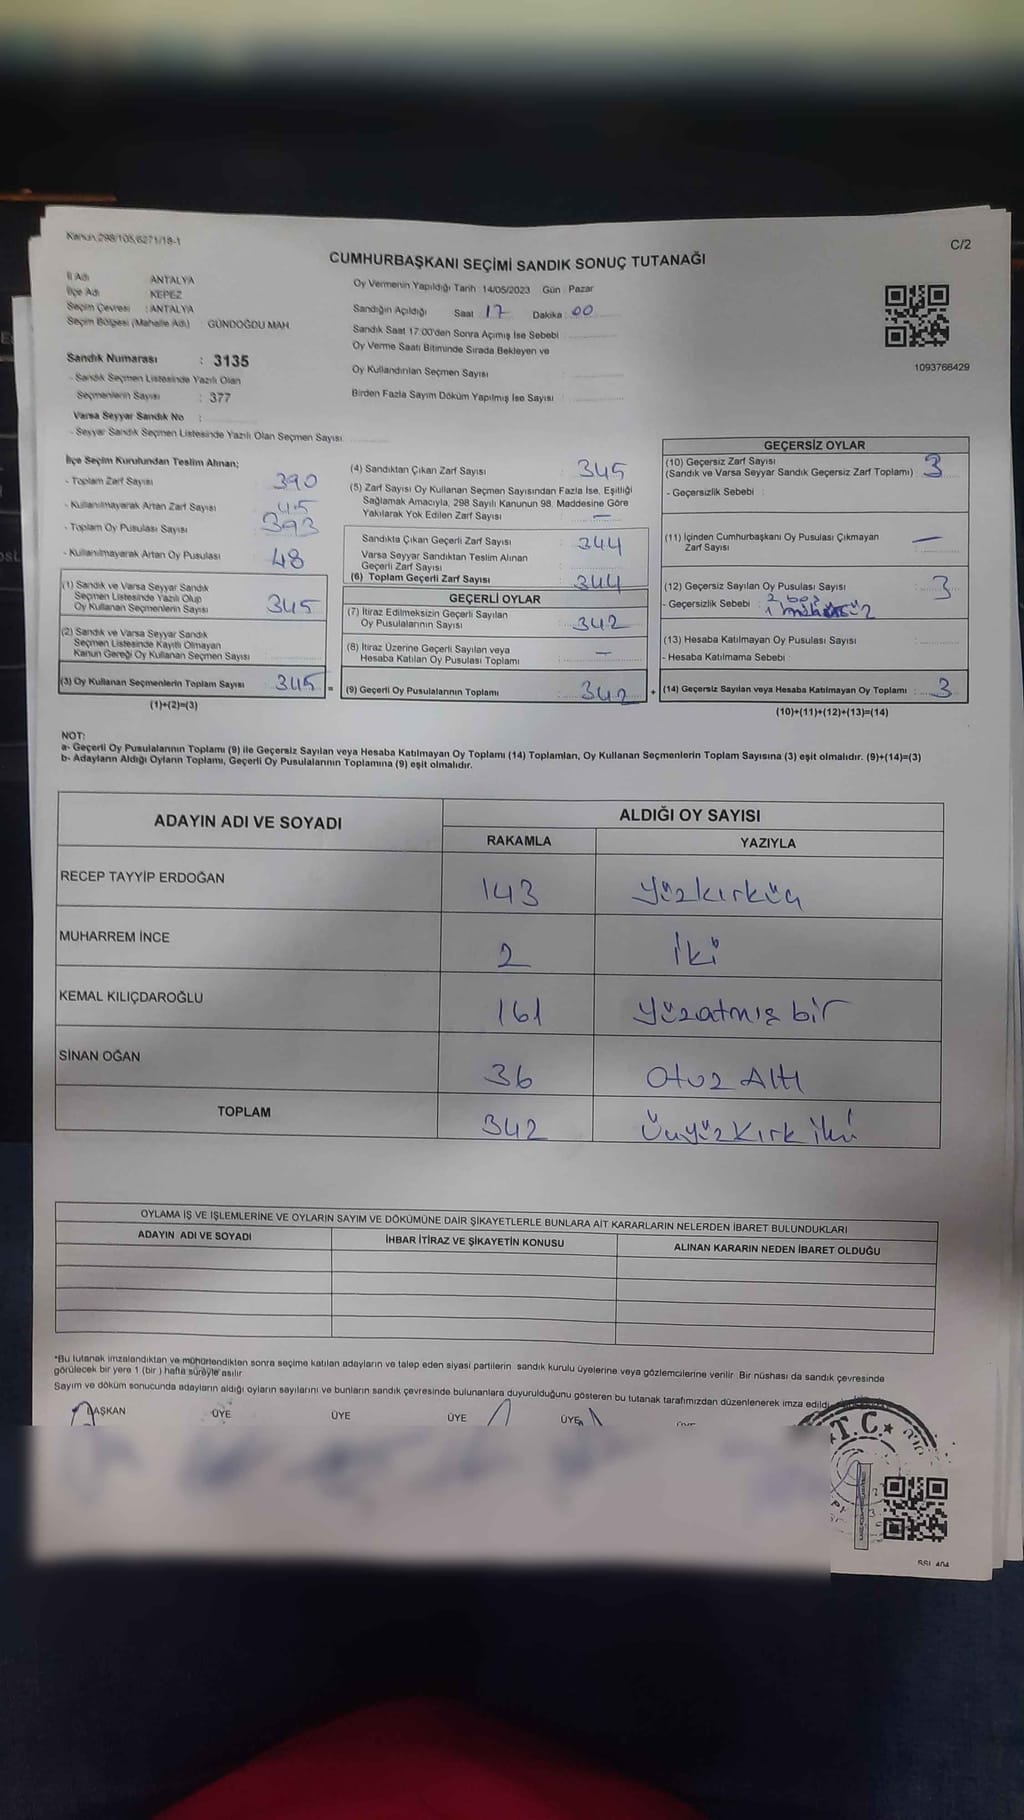 Kanun.298/105,6271/18-1
C/2
CUMHURBAŞKANI SEÇİMİ SANDIK SONUÇ TUTANAĞI
İl Adı ANTALYA
İlçe Adı KEPEZ
Seçim Çevresi : ANTALYA
Seçim Bölgesi (Mahalle Adı) : GÜNDOĞDU MAH.
Oy Vermenin Yapıldığı Tarih : 14/05/2023 Gün : Pazar
Sandığın Açıldığı Saat 17 Dakika : 00
Sandık Saat 17:00'den Sonra Açımış İse Sebebi
Oy Verme Saati Bitiminde Sırada Bekleyen ve
Oy Kullandırılan Seçmen Sayısı
Birden Fazla Sayım Döküm Yapılmış İse Sayısı
1093766429
Sandık Numarası : 3135
- Sandık Seçmen Listesinde Yazılı Olan
Seçmenlerin Sayısı : 377
Varsa Seyyar Sandık No :
- Seyyar Sandık Seçmen Listesinde Yazılı Olan Seçmen Sayısı
İlçe Seçim Kurulundan Teslim Alınan;
- Toplam Zarf Sayısı 390
- Kullanılmayarak Artan Zarf Sayısı 45
- Toplam Oy Pusulası Sayısı 393
- Kullanılmayarak Artan Oy Pusulası 48
(1) Sandık ve Varsa Seyyar Sandık
Seçmen Listesinde Yazılı Olup
Oy Kullanan Seçmenlerin Sayısı 345
(2) Sandık ve Varsa Seyyar Sandık
Seçmen Listesinde Kayıtlı Olmayan
Kanun Gereği Oy Kullanan Seçmen Sayısı
(3) Oy Kullanan Seçmenlerin Toplam Sayısı 345 =
(1)+(2)=(3)
(4) Sandıktan Çıkan Zarf Sayısı : 345
(5) Zarf Sayısı Oy Kullanan Seçmen Sayısından Fazla İse, Eşitliği
Sağlamak Amacıyla, 298 Sayılı Kanunun 98. Maddesine Göre
Yakılarak Yok Edilen Zarf Sayısı : —
Sandıkta Çıkan Geçerli Zarf Sayısı : 344
Varsa Seyyar Sandıktan Teslim Alınan
Geçerli Zarf Sayısı
(6) Toplam Geçerli Zarf Sayısı : 344
GEÇERLİ OYLAR
(7) İtiraz Edilmeksizin Geçerli Sayılan
Oy Pusulalarının Sayısı : 342
(8) İtiraz Üzerine Geçerli Sayılan veya
Hesaba Katılan Oy Pusulası Toplamı : —
(9) Geçerli Oy Pusulalarının Toplamı : 342 +
GEÇERSİZ OYLAR
(10) Geçersiz Zarf Sayısı
(Sandık ve Varsa Seyyar Sandık Geçersiz Zarf Toplamı) : 3
- Geçersizlik Sebebi :
(11) İçinden Cumhurbaşkanı Oy Pusulası Çıkmayan
Zarf Sayısı —
(12) Geçersiz Sayılan Oy Pusulası Sayısı 3
- Geçersizlik Sebebi : 2 boş
1
(13) Hesaba Katılmayan Oy Pusulası Sayısı
- Hesaba Katılmama Sebebi
(14) Geçersiz Sayılan veya Hesaba Katılmayan Oy Toplamı : 3
(10)+(11)+(12)+(13)=(14)
NOT:
a- Geçerli Oy Pusulalarının Toplamı (9) ile Geçersiz Sayılan veya Hesaba Katılmayan Oy Toplamı (14) Toplamları, Oy Kullanan Seçmenlerin Toplam Sayısına (3) eşit olmalıdır. (9)+(14)=(3)
b- Adayların Aldığı Oyların Toplamı, Geçerli Oy Pusulalarının Toplamına (9) eşit olmalıdır.
ADAYIN ADI VE SOYADI
ALDIĞI OY SAYISI
RAKAMLA YAZIYLA
RECEP TAYYİP ERDOĞAN 143 Yüzkırküç
MUHARREM İNCE 2 İki
KEMAL KILIÇDAROĞLU 161 Yüzatmış bir
SİNAN OĞAN 36 Otuz Altı
TOPLAM 342 Üçyüz Kırk iki
OYLAMA İŞ VE İŞLEMLERİNE VE OYLARIN SAYIM VE DÖKÜMÜNE DAİR ŞİKAYETLERLE BUNLARA AİT KARARLARIN NELERDEN İBARET BULUNDUKLARI
ADAYIN ADI VE SOYADI İHBAR İTİRAZ VE ŞİKAYETİN KONUSU ALINAN KARARIN NEDEN İBARET OLDUĞU
*Bu tutanak imzalandıktan ve mühürlendikten sonra seçime katılan adayların ve talep eden siyasi partilerin sandık kurulu üyelerine veya gözlemcilerine verilir. Bir nüshası da sandık çevresinde
görülecek bir yere 1 (bir ) hafta süreyle asılır
Sayım ve döküm sonucunda adayların aldığı oyların sayılarını ve bunların sandık çevresinde bulunanlara duyurulduğunu gösteren bu tutanak tarafımızdan düzenlenerek imza edildi.
BAŞKAN ÜYE ÜYE ÜYE ÜYE
T.C.